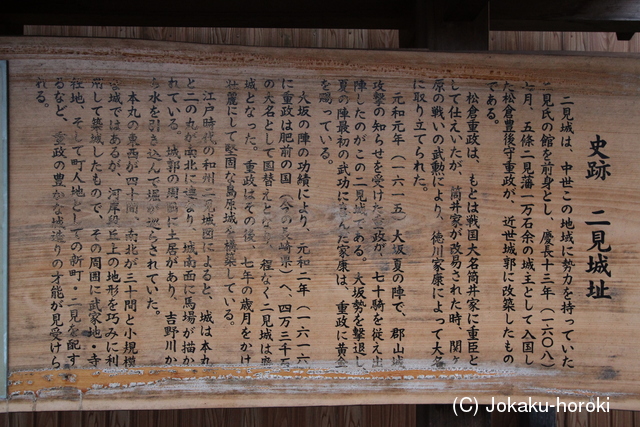 史跡 二見城址
二見城は、中世この地域に勢力を持っていた
二見氏の館を前身とし、慶長十三年（一六〇八）
七月、五條二見藩一万石余の城主として入国し
た松倉豊後守重政が、近世城郭に改築したもの
である。
松倉重政は、もとは戦国大名筒井家に重臣と
して仕えいたが、筒井家が改易された時、関ヶ
原の戦いの武勲により、徳川家康によって大名
に取り立てられた。
元和元年（一六一五）大坂夏の陣で、郡山城
攻撃の知らせを受けた重政が、七十騎を従え出
陣したのがこの二見城である。大坂勢を撃退し
夏の陣最初の武功に喜んだ家康は、重政に黄金
を賜っている。
大坂の陣の功績により、元和二年（一六一六）
に重政は肥前の国（今の長崎県）へ、四万三千石
の大名として国替えとなり、程なく二見城は廃
城となった。重政はその後、七年の歳月をかけ
壮麗にして堅固な島原城を構築している。
江戸時代の和州二見城図によると、城は本丸
と二の丸が南北に連なり、城南面に馬場が描か
れている。城郭の周囲に土居があり、吉野川か
ら水を引き込んで堀が巡らされていた。
本丸の東西が四十間、南北が三十間と小規模
な城ではあるが、河岸段丘上の地形を巧みに利
用して築城したもので、その周囲に武家地・寺
社地、そして町人地としての新町・二見を配す
るなど、重政の豊かな城造りの才能が見受けら
れる。
(C) Jokaku-horoki